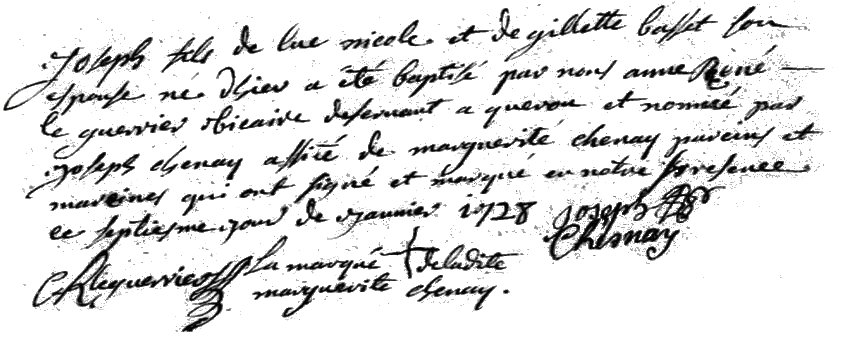 Joseph fils de luc nicole et de gillette basset son
espouse né dhier a été baptisé par nous anne René
le guerrier vicaire desernant a querou et nommé par
Joseph chenay assité de marguerité chenay pareins et
mareines qui ont signé et marqué en notre presence
ce septiesme jour de janvier 1728 joseph
Chesnay
RLeguerrier la marqué de ladite
marguerite chenay.